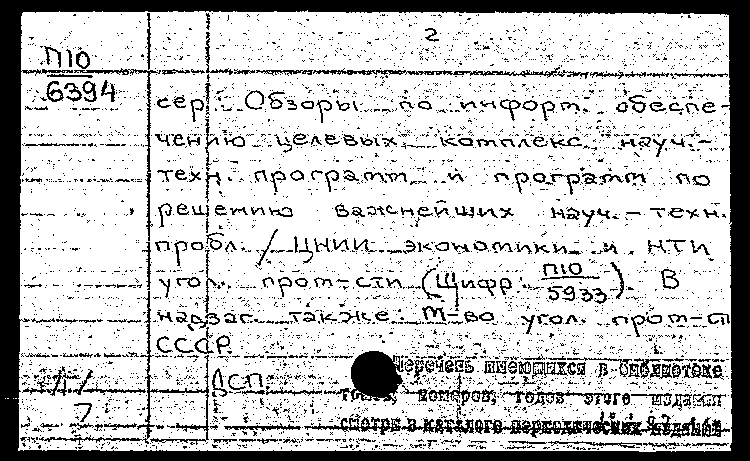 2
П10
6394
сер.: Обзоры по информ. обеспе-
чению целевых комплекс. науч.-
техн. программ и программ по
решению важнейших науч.-техн.
пробл. / ЦНИИ экономики и НТИ
угол. пром-сти (Шифр П10
5933). В
надзаг. также: М-во угол. пром-сти
СССР.
ДСП
Перечень имеющихся в библиотеке
томов, номеров, годов этого издания
смотри в каталоге периодических изданий